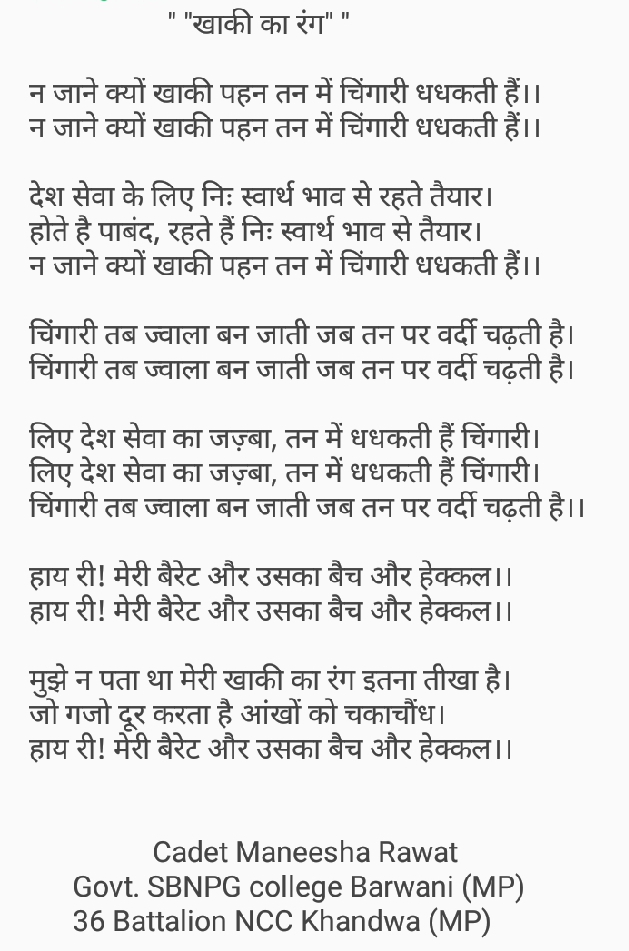 " "खाकी का रंग" "
न जाने क्यों खाकी पहन तन में चिंगारी धधकती हैं।।
न जाने क्यों खाकी पहन तन में चिंगारी धधकती हैं।।
देश सेवा के लिए निः स्वार्थ भाव से रहते तैयार।
होते है पाबंद, रहते हैं निः स्वार्थ भाव से तैयार।
न जाने क्यों खाकी पहन तन में चिंगारी धधकती हैं।।
चिंगारी तब ज्वाला बन जाती जब तन पर वर्दी चढ़ती है।
चिंगारी तब ज्वाला बन जाती जब तन पर वर्दी चढ़ती है।
लिए देश सेवा का जज़्बा, तन में धधकती हैं चिंगारी।
लिए देश सेवा का जज़्बा, तन में धधकती हैं चिंगारी।
चिंगारी तब ज्वाला बन जाती जब तन पर वर्दी चढ़ती है।।
हाय री! मेरी बैरेट और उसका बैच और हेक्कल।।
हाय री! मेरी बैरेट और उसका बैच और हेक्कल।।
मुझे न पता था मेरी खाकी का रंग इतना तीखा है।
जो गजो दूर करता है आंखों को चकाचौंध।
हाय री! मेरी बैरेट और उसका बैच और हेक्कल।।
Cadet Maneesha Rawat
Govt. SBNPG college Barwani (MP)
36 Battalion NCC Khandwa (MP)